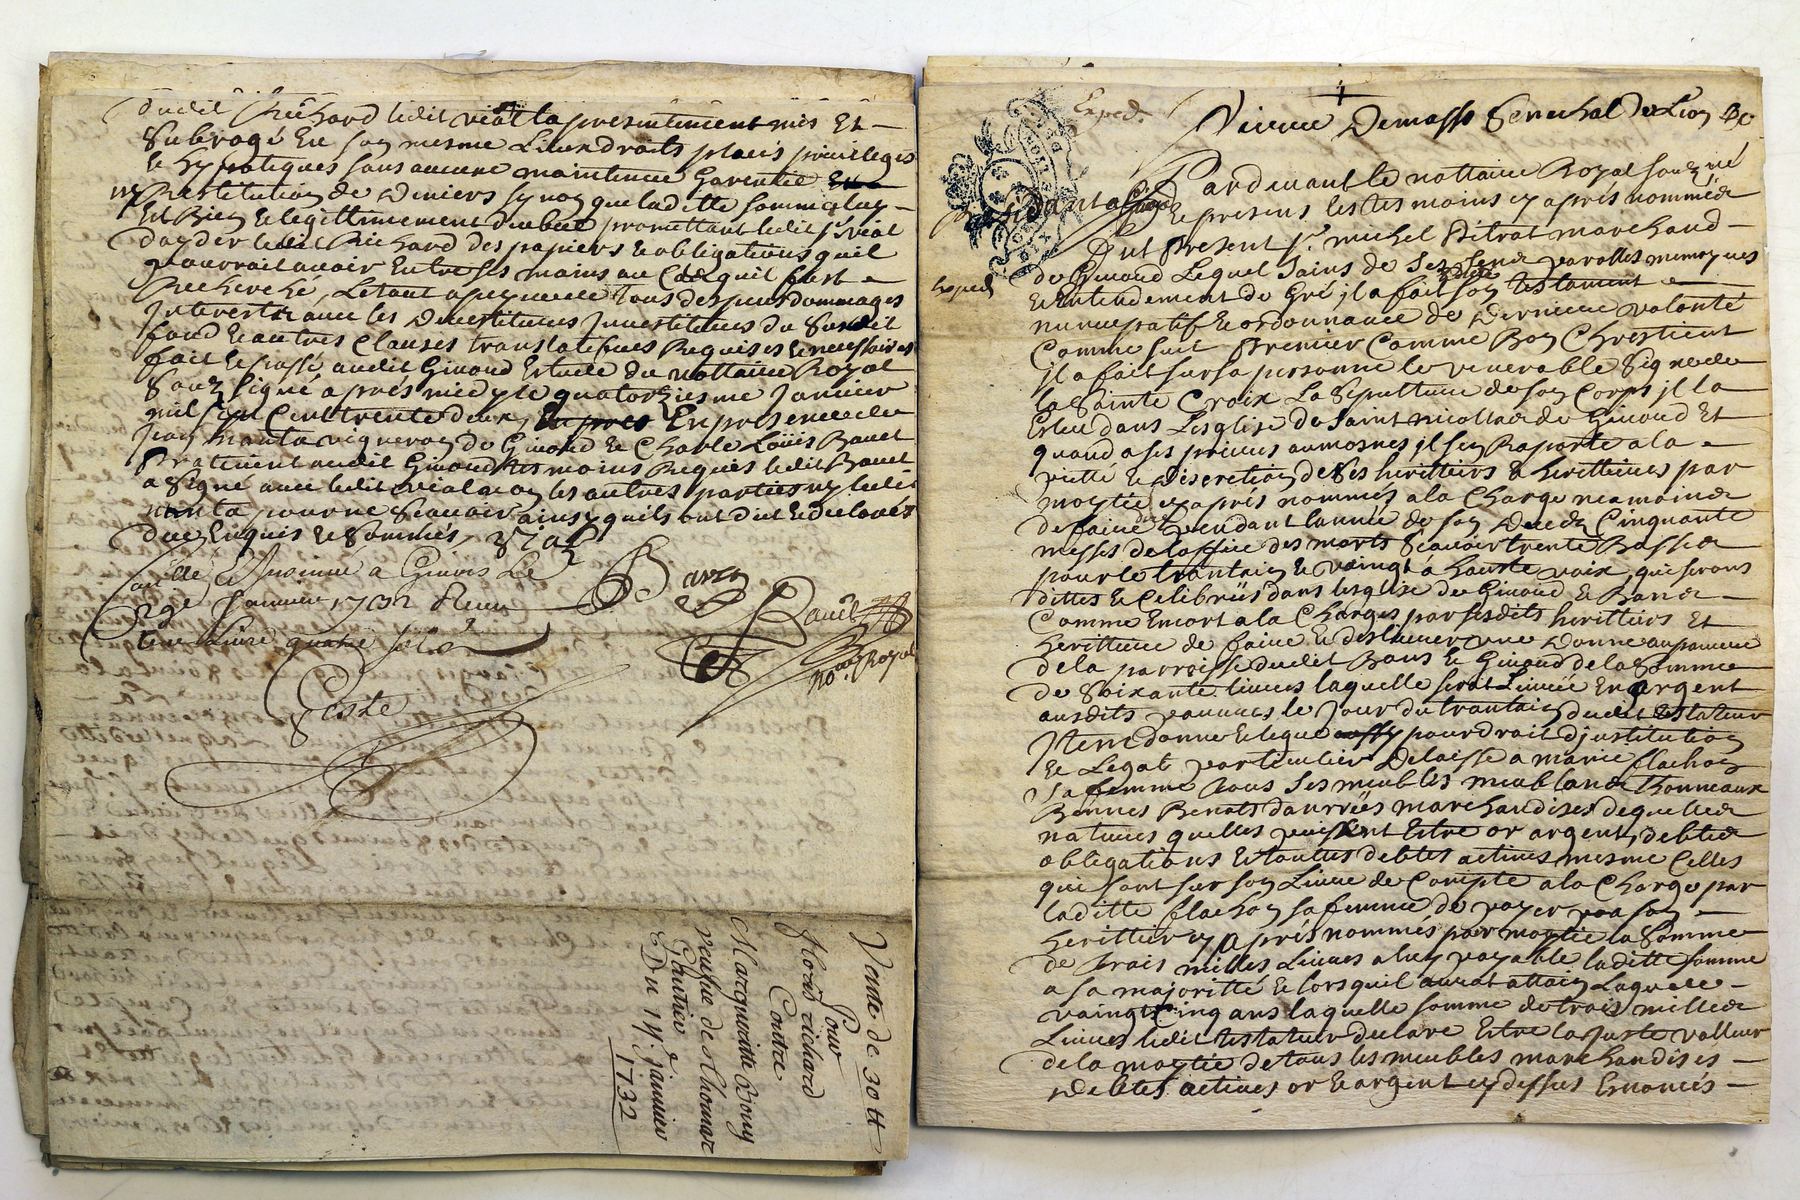 dudit Richard ledit Vial la presentement mis Et
Subrogé En son mesme Lieu droits places privileges
& hypotiques sans aucune maintenue Garentie
Restitution de deniers synon que laditte somme luy
Est Bien & legittimement deube promettant ledit sr Vial
dayder ledit Richard des papiers & obligations quil
pourrait avoir Entre ses mains au Cas quil fust
Recherché, Letout apeyne de tous despens dommages
Interest avec les devestitures Investitures du Susdit
fond & autres Clauses translatifves Requises & necessaires
fait & passé audit Givord Estude du nottaire Royal
Soubz signé apres midy le quatorziesme Janvier
mil sept Cent trente deux, En presence de
Jean manta vigneron de Givord & Charle Loüis Bauet
Praticient audit Givord tesmoins Requis ledit Bauet
a signé avec ledit Vial non les autres parties ny ledit
manta pour ne Scavoir ainsy quils ont dit & declarés
de ce Enquis & Sommés, Vial
Controllé & Insinué a Givors Le
Janvier 1732 Receu
une Livre quatre sols
Bauet
no.re Royal
Vente de 30 tt
Pour
floris richard
Contre
Margueritte Bouy
veufue de thomas
Gautier
Du 14.e Janvier
1732
Exped.
Pierre Demasso Senechal de Lion
Pardevant le nottaire Royal soubzné
& presens les tesmoins cy apres nommés
Fut Present sr. michel Pitrat marchand
de Givord Lequel Sains de Ses Sens parolles memoyres
Exped
& Entendement de Gré jl a fait son testament
nuncupatif & ordonnance de Derniere volonté
Comme suit Premier Comme Bon Chrestient
jl a fait sur sa personne le venerable Signe de
la Sainte Croix La Sepulture de son Corps jl la
Esleu dans Lesglise de Saint nicollas de Givord Et
quand a ses prieres aumosnes jl sen Raporte a la
pitté & discretion de Ses heritiers & herittieres par
moytié cy apres nommés a la Charge neamoins
de faire dire pendant lannée de son Deceds Cinquante
messes de loffice des morts Scavoir trente Basses
pour le trantain & vaingt a haute voix, qui seront
dittes & Celebrées dans lesglise de Givord & Bans
Comme Encort a la Charges par sesdits heritiers Et
herittiere de faire & deslivrer une Donne aux pauvres
de la parroisse dudit Bans & Givord de la Somme
de Soixante livres laquelle serat Livrée En argent
ausdits pauvres le Jour du trantain dudit testateur
Item donne & legue pour droit d'justitution
& Legat particulier Delaisse a marie flachon
sa femme tous ses meubles meublans Thonneaux
Bennes Benots danrrées marchandises de quelles
natures quelles puissent Estre or argent, debtes
obligations & toutes debtes actives mesme Celles
qui sont sur son Livre de Compte a la Charge par
laditte flachon sa femme de payer a son
herittier cy aprés nommés par moytié la Somme
de trois milles Livres a luy payable laditte somme
a sa majoritté & lorsquil aurat attain Laage de
vaingt Cinq ans laquelle somme de trois milles
Livres ledit testateur declare Estre la juste valleur
de la moytié de tous les meubles marchandises
Debtes actives or & argent cy dessus Enoncés